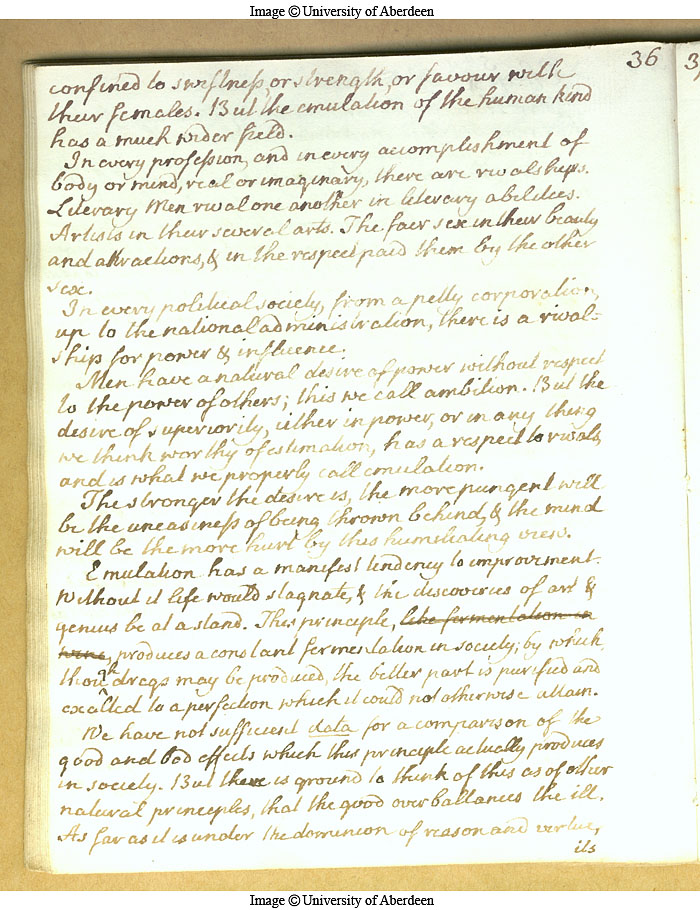 Image © University of Aberdeen
36
confined to swiftness, or strength, or favour with
their females. But the emulation of the human kind
has a much wider field.
In every profession, and in every acomplishment of
body or mind, real or imaginary, there are rivalships.
Literary Men rival one another in literary abilities.
Artists in their several arts. The fair sex in their beauty
and attractions, & in the respect paid them by the other
sex.
In every political society, from a petty corporation,
up to the national administration, there is a rival=
ship for power & influence.
Men have a natural desire of power without respect
to the power of others; this we call ambition. But the
desire of superiority, either in power, or in any thing
we think worthy of estimation, has a respect to rivals,
and is what we properly call emulation.
The stronger the desire is, the more pungent will
be the uneasiness of being thrown behind, & the mind
will be the more hurt by this humiliating view.
Emulation has a manifest tendency to improvement.
Without it life would stagnate, & the discoveries of art &
genius be at a stand. This principle, like fermentation in
wine, produces a constant fermentation in society; by which,
though dregs may be produced, the better part is purified and
exalted to a perfection which it could not otherwise attain.
We have not sufficient data for a comparison of the
good and bad effects which this principle actually produces
in society. But there is ground to think of this as of other
natural principles, that the good overballances the ill.
As far as it is under the dominion of reason and virtue,
its
Image © University of Aberdeen